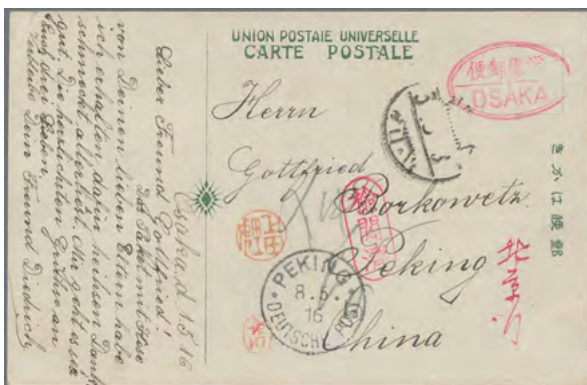 UNION POSTALE UNIVERSELLE
CARTE POSTALE
Herrn
Gottfried
Borkowetz
Peking
China
郵便はかき
北京行
OSAKA
検閲済
PEKING
8.5.
16
DEUTSCHE POST
Osaka, d. 1.5.16
Lieber Freund Gottfried!
Das Paket mit
von Deinen lieben Eltern habe
ich erhalten, dafür herzlichen Dank
schmeckt allerliebst. Mir geht es sehr
gut. Die herzlichsten Grüße an
Euch drei Lieben
Dein Freund Diedrich